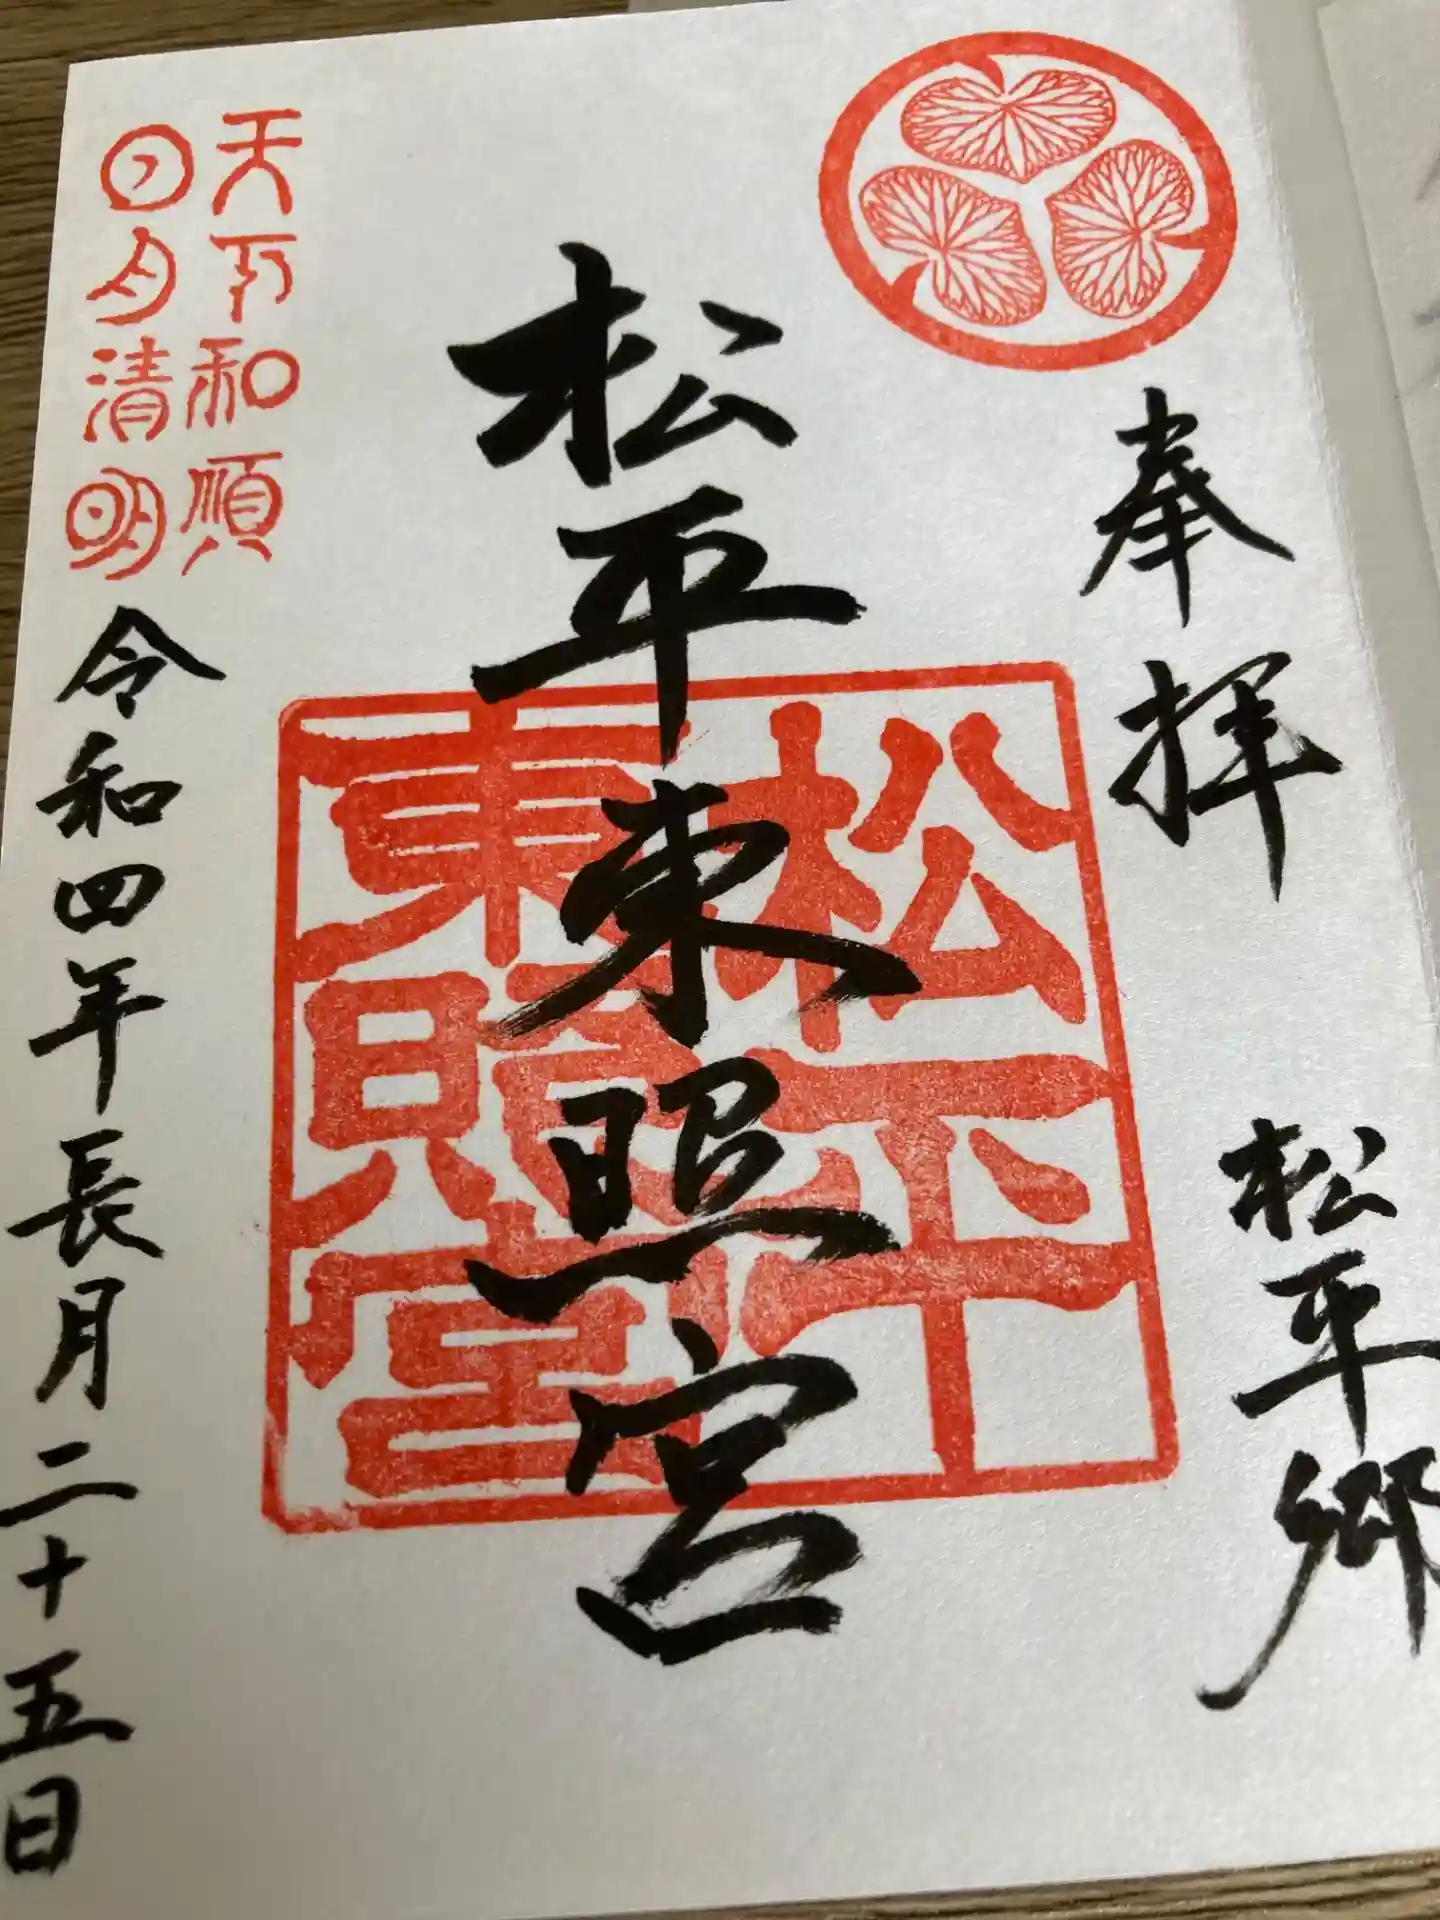 奉拝
松平郷
松平東照宮
松平
東照宮
天下和順
日月清明
令和四年長月二十五日